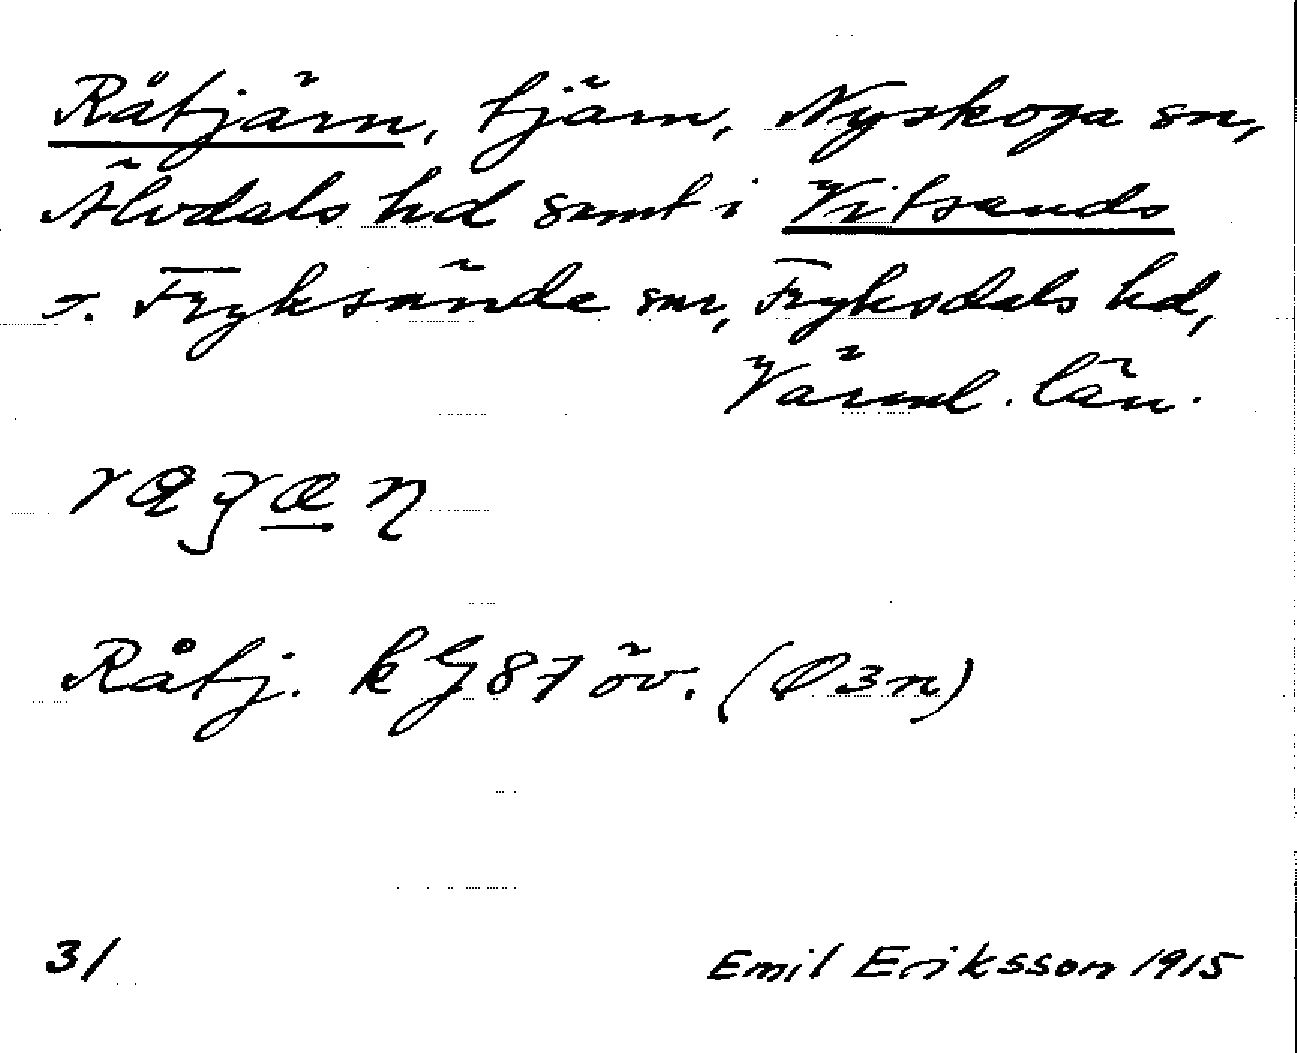 Råtjärn, tjärn, Nyskoga sn,
Älvdals hd samt i Vitsands
o. Fryksände snr, Fryksdals hd,
Värml. län.
Råtj. k G 87 öv. (Ø3n)
3/
Emil Eriksson 1915